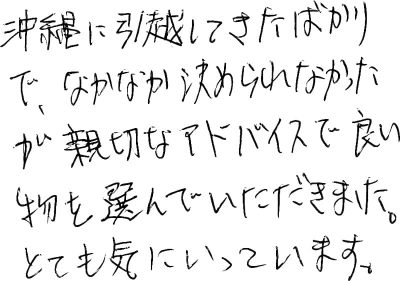 沖縄に引越してきたばかり
で、なかなか決められなかった
が親切なアドバイスで良い
物を選んでいただきました。
とても気にいっています。